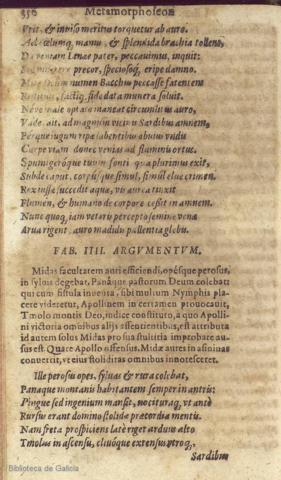 350 Metamorphoseon
Vrit, & inuiso meritus torquetur ab auro.
Ad cœlumq; manus, & splendida brachia tollens,
Da veniam Lenæe pater, peccauimus, inquit:
precor, speciosoq; eripe damno.
numen Bacchus peccasse fatentem
Restituit, factiq; fide data munera soluit.
Neve male optato maneat circunlitus auro,
Vade, ait, ad magnis vicinū Sardibus amnem,
Perque iugum ripæ labentibus obuius vndis
Carpe viam donec venias ad fluminis ortus.
Spumigeroque tuum fonti qua plurimus exit,
Subde caput, corpusque simul, simul elue crimen.
Rex iussæ succedit aquæ, vis aurea tinxit
Flumen, & humano de corpore cessit in amnem.
Nunc quoq; iam veteris percepto semine venæ
Arua rigent auro madidis pallentia glebis.
FAB. IIII. ARGVMENTVM.
Midas facultatem auri efficiendi, opésque perosus,
in syluis degebat, Panáque pastorum Deum colebat:
qui cum fistula inuenta, sibi multum Nymphis placere
videretur, Apollinem in certamen prouocauit,
Tmolo montis Deo, iudice constituto, à quo Apollini
victoria omnibus alijs assentientibus, est attributa
id autem solus Midas pro sua stultitia improbare ausus
est. Quare Apollo offensus. Midæ aures in asininas
conuertit, vt eius stoliditas omnibus innotesceret.
Ille perosus opes, syluas & rura colebat,
Panaque montanis habitantem semper in antris:
Pingue sed ingenium mansit, nocituraq; vt antè
Rursus erant domino stolidæ præcordia mentis.
Nam freta prospiciens latè riget arduus alto
Tmolus in ascensu, cliuóque extensus vtroq;,
Sardibus
Biblioteca de Galicia